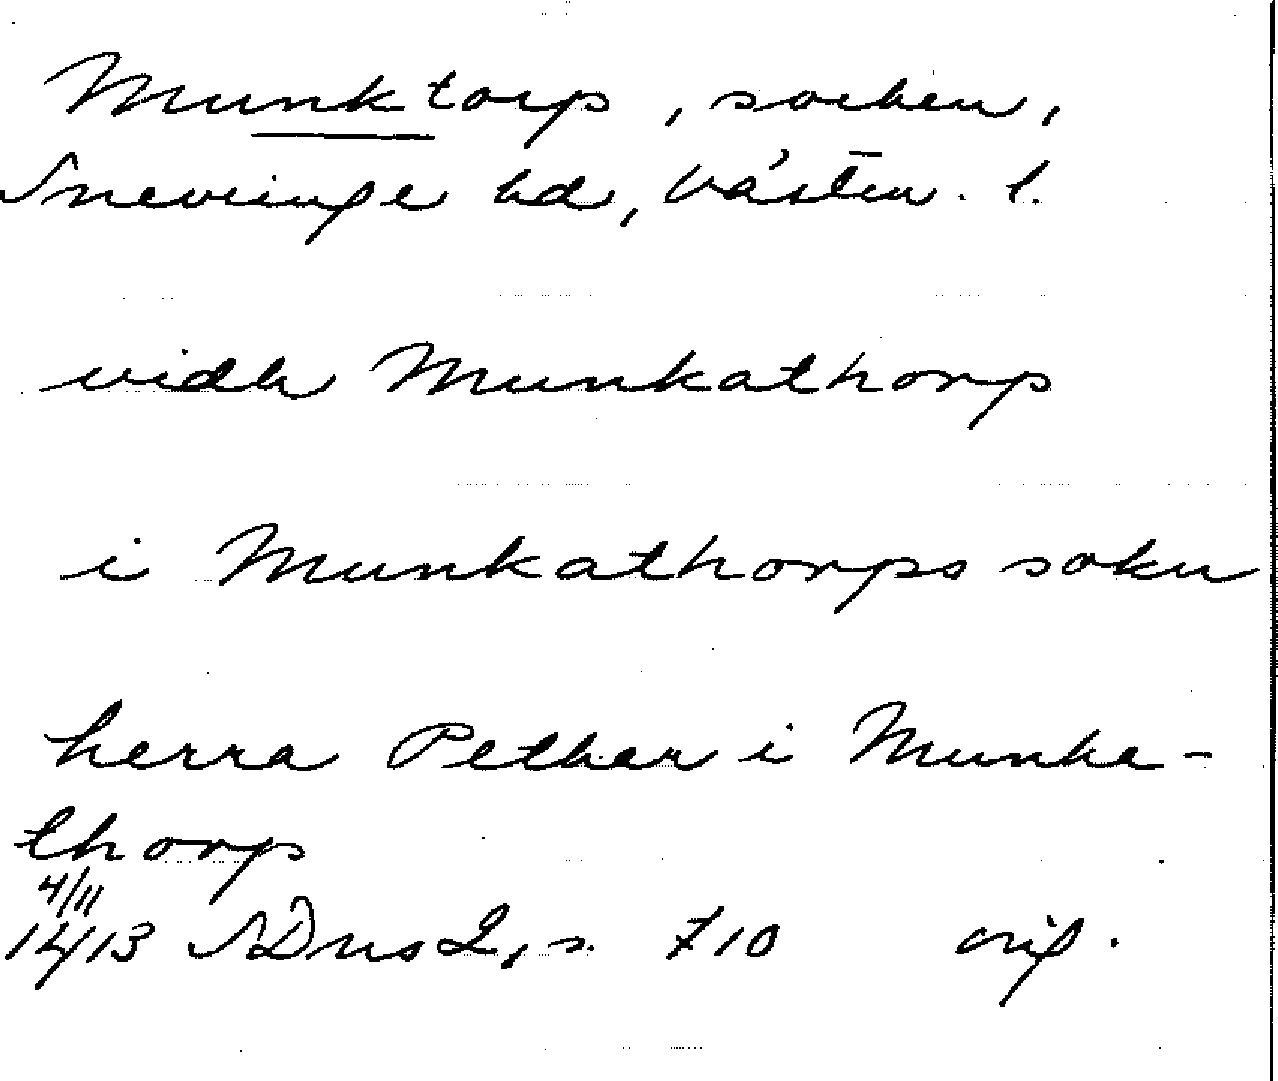 Munktorp, socken,
Snevringe hd, Västm. l.
vidh Munkathorp
i Munkathorps sokn
herra Pethar i Munka-
thorp
4/11
1413 SDns 2, s. 710 orig.